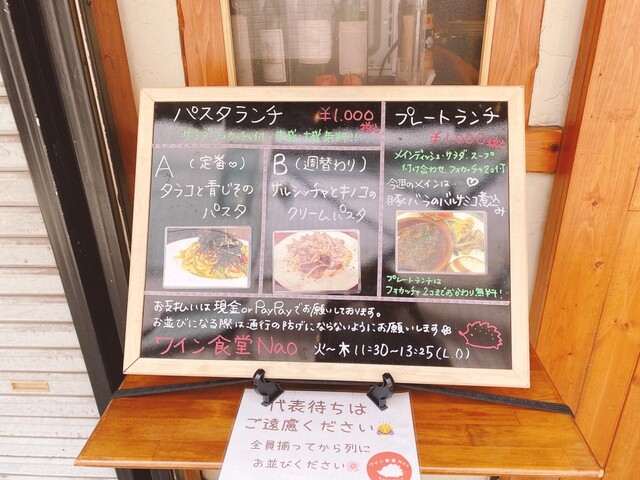 パスタランチ ¥1.000 税込
サラダ・フォカッチャ付 麺大盛無料!!
A (定番♡)
タラコと青じその
パスタ
B (週替わり)
サルシッチャとキノコの
クリームパスタ
プレートランチ
¥1.000 税込
メインディッシュ・サラダ、スープ
付け合わせ、フォカッチャ2コ付
今週のメインは…♡
豚バラのバルサミコ煮込み
プレートランチは
フォカッチャ2コまでおかわり無料!
お支払いは現金orPayPayでお願いしております。
お並びになる際は通行の妨げにならないようにお願いします
ワイン食堂Nao 火〜木 11:30-13:25(LO)
代表待ちは
ご遠慮ください
全員揃ってから列に
お並びください
ワイン食堂NAO